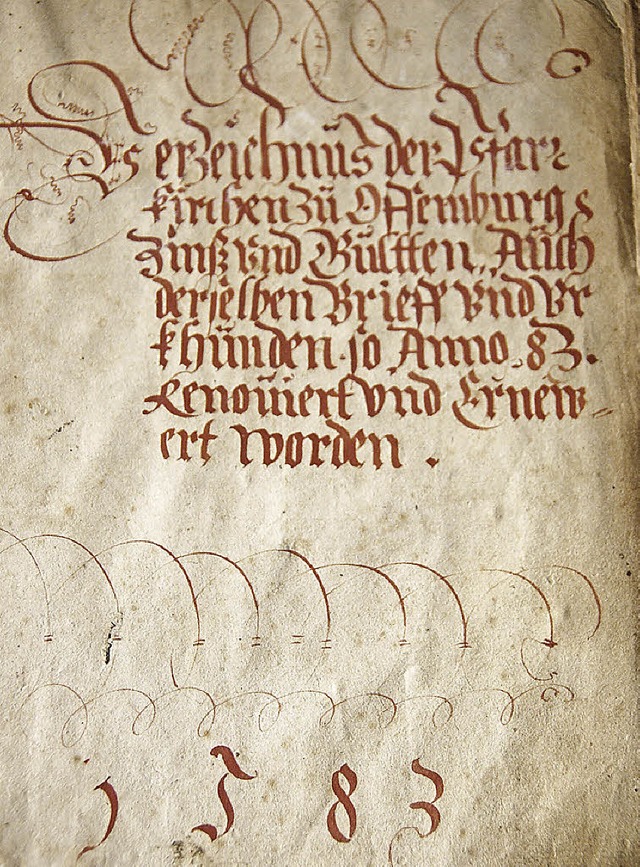 Verzeichnüs der Pfar-
kirchen zü Offemburg
Zinß vnd Gültten, Aüch
derselben Brieff vnd Vr
khünden so Anno 83.
Renouiert vnd Ernew-
ert worden.
1583